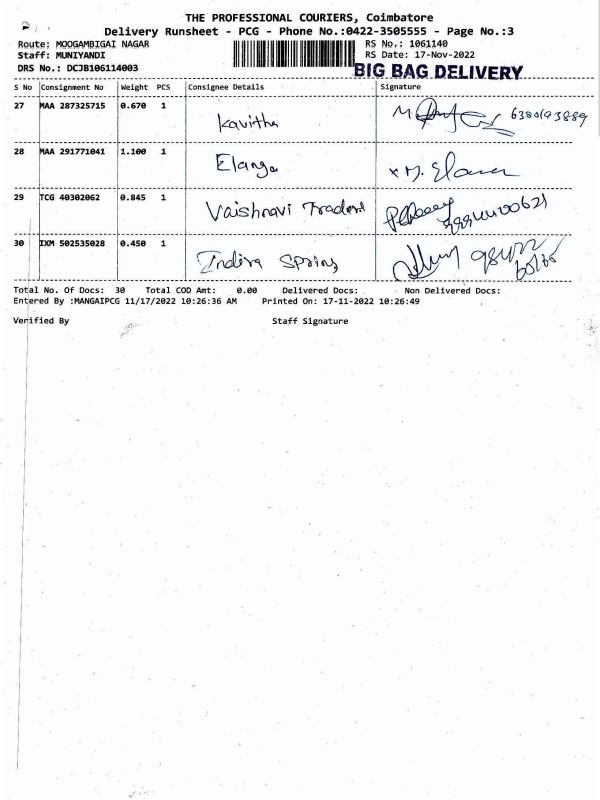 THE PROFESSIONAL COURIERS, Coimbatore
Delivery Runsheet - PCG - Phone No.:0422-3505555 - Page No.:3
Route: MOOGAMBIGAI NAGAR RS No.: 1061140
Staff: MUNIYANDI RS Date: 17-Nov-2022
DRS No.: DCJB106114003 BIG BAG DELIVERY
S No Consignment No Weight PCS Consignee Details Signature
27 MAA 287325715 0.670 1 Kavitha
28 MAA 291771041 1.100 1 Elango
29 TCG 40302062 0.845 1 Vaishnavi Traders
30 IXM 502535028 0.450 1 Indira Spring
Total No. Of Docs: 30 Total COD Amt: 0.00 Delivered Docs: Non Delivered Docs:
Entered By :MANGAIPCG 11/17/2022 10:26:36 AM Printed On: 17-11-2022 10:26:49
Verified By Staff Signature